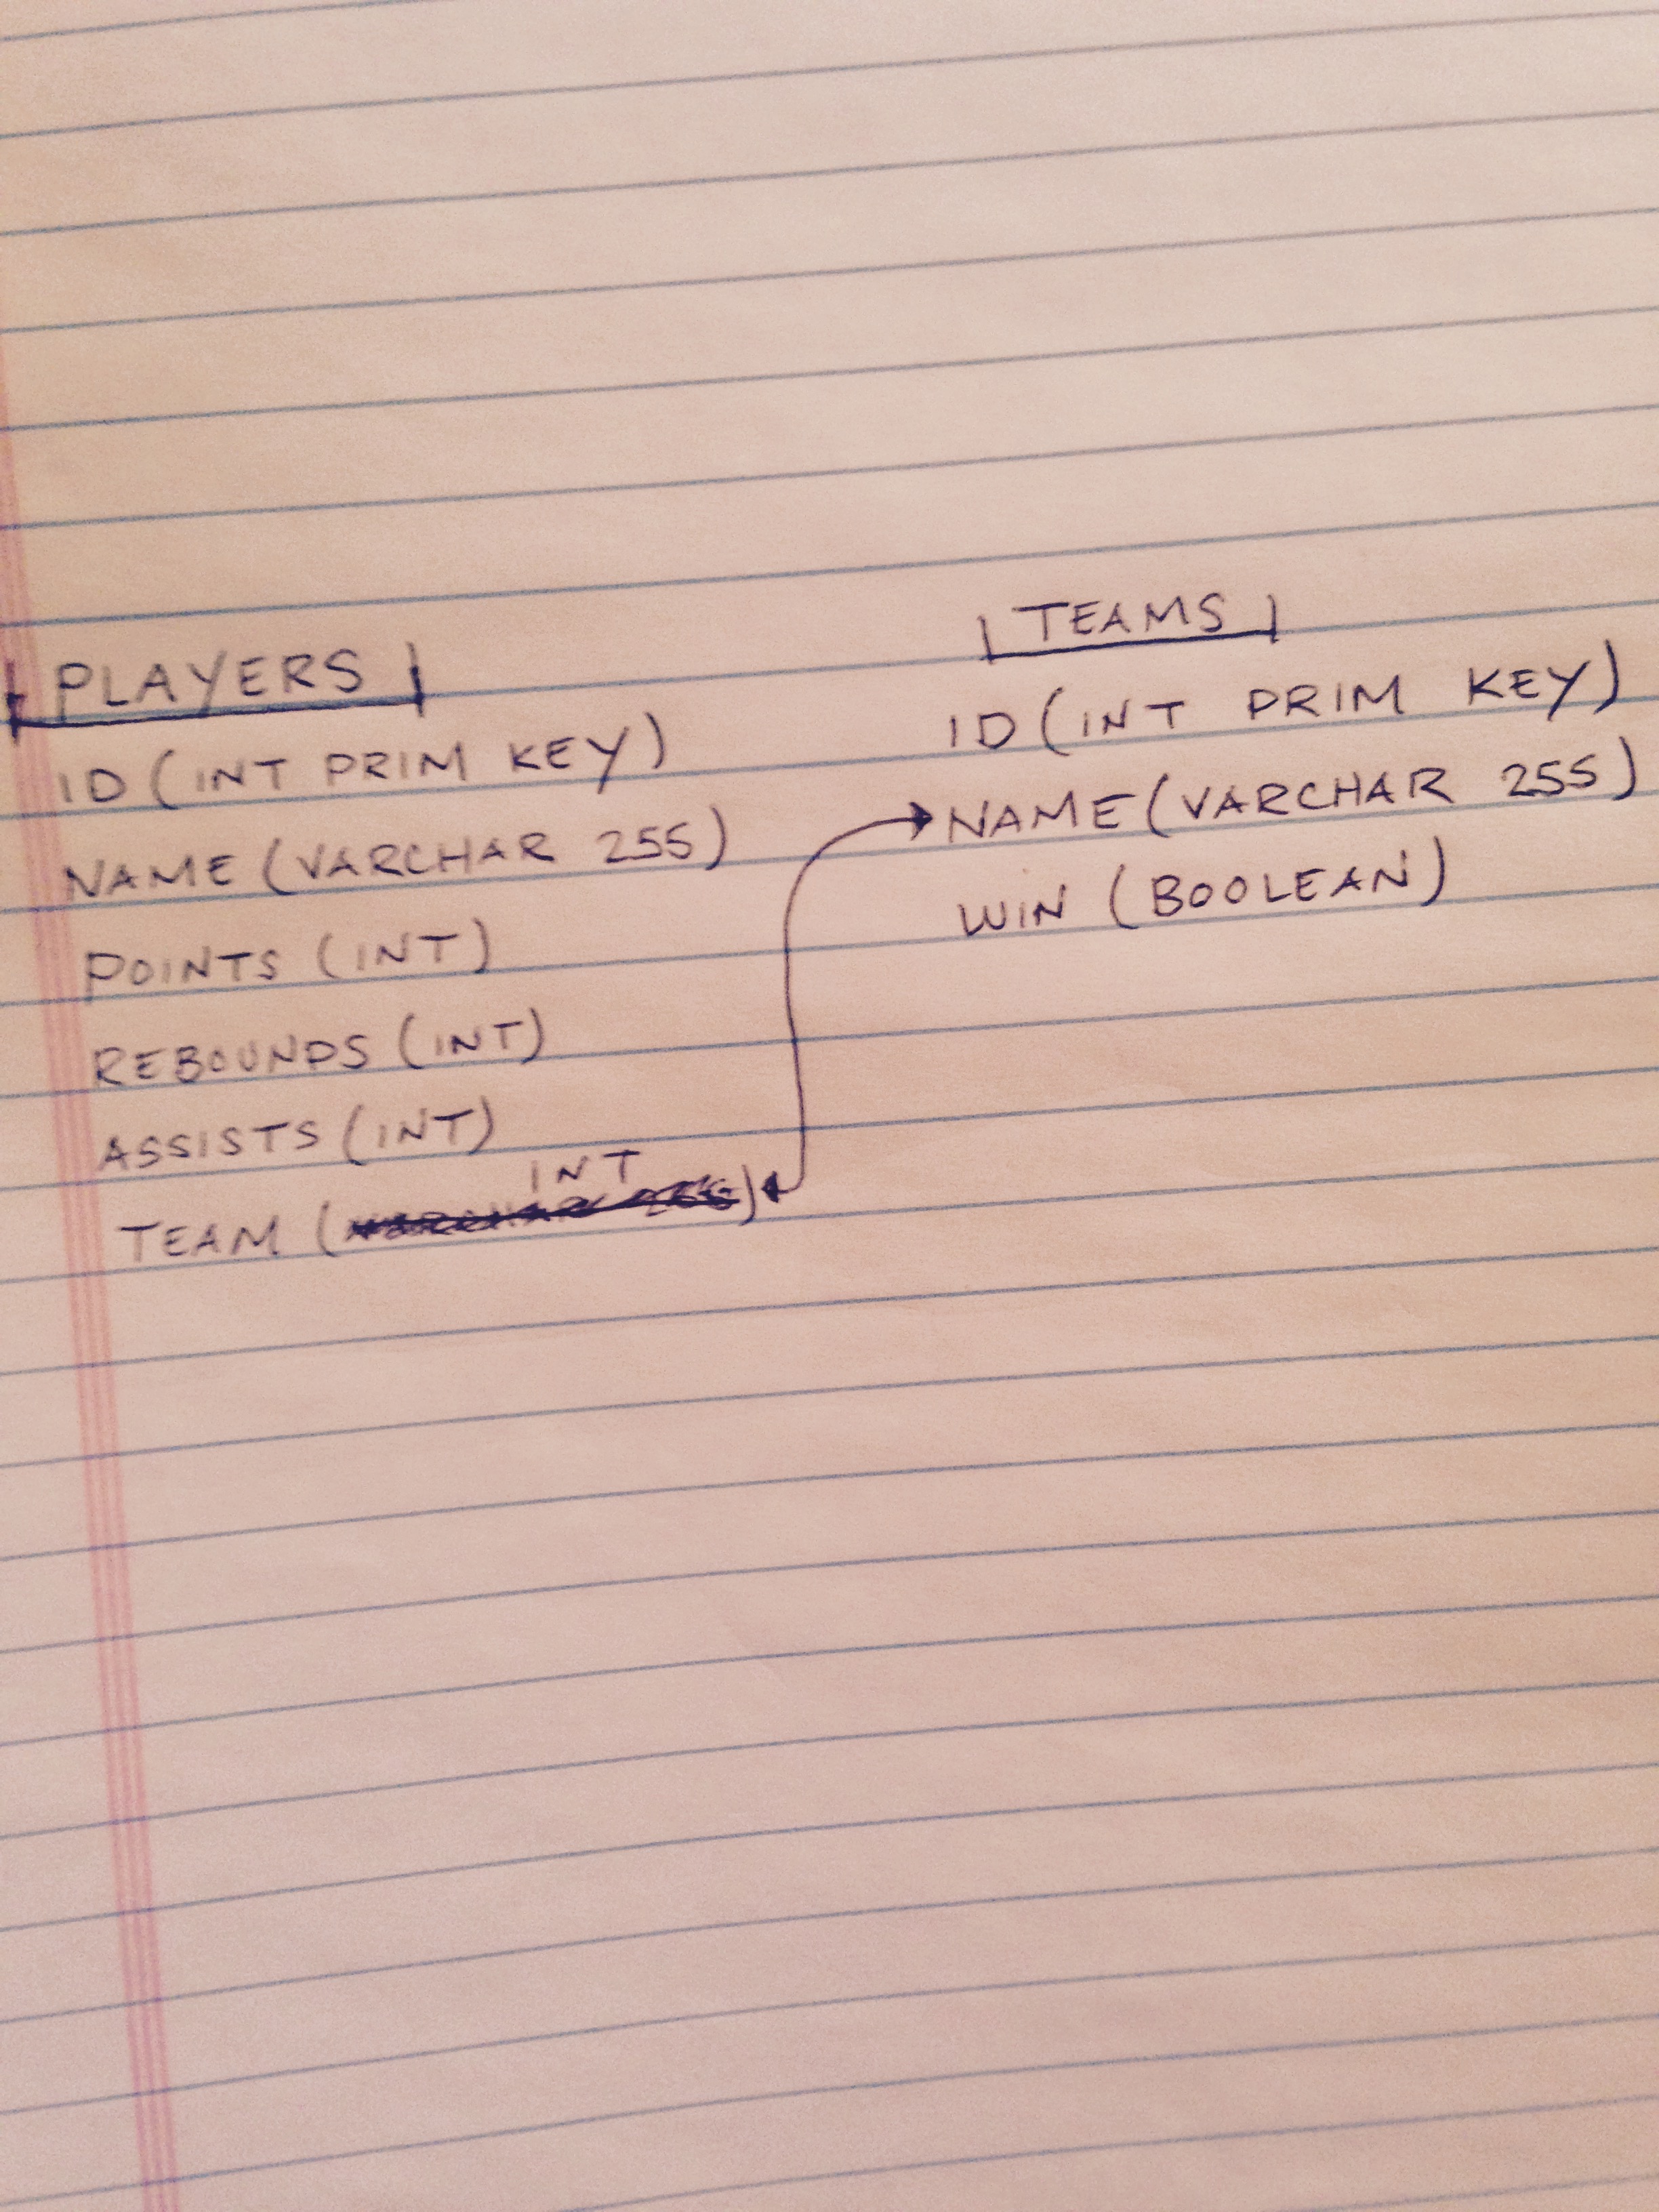 PLAYERS
ID (INT PRIM KEY)
NAME (VARCHAR 255)
POINTS (INT)
REBOUNDS (INT)
ASSISTS (INT)
INT
TEAM ( )
TEAMS
ID (INT PRIM KEY)
NAME (VARCHAR 255)
WIN (BOOLEAN)